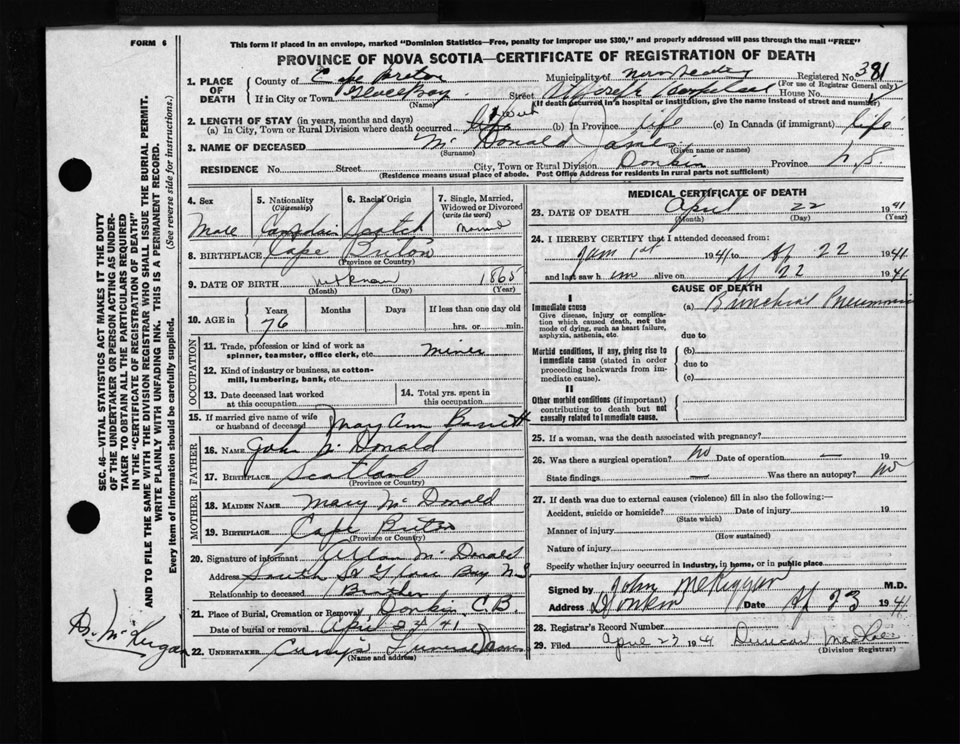 FORM 6
This form if placed in an envelope, marked "Dominion Statistics—Free, penalty for improper use $300," and properly addressed will pass through the mail "FREE"
PROVINCE OF NOVA SCOTIA—CERTIFICATE OF REGISTRATION OF DEATH
1. PLACE OF DEATH
County of Cape Breton Municipality of Registered No. 381
(For use of Registrar General only)
If in City or Town Glace Bay Street St Joseph Hospital House No.
(Name) (If death occurred in a hospital or institution, give the name instead of street and number)
2. LENGTH OF STAY (in years, months and days)
(a) In City, Town or Rural Division where death occurred 1 week (b) In Province life (c) In Canada (if immigrant) life
3. NAME OF DECEASED McDonald James
(Surname) (Given name or names)
RESIDENCE No. Street City, Town or Rural Division Donkin Province N.S.
(Residence means usual place of abode. Post Office Address for residents in rural parts not sufficient)
4. Sex
Male
5. Nationality (Citizenship)
Canadian
6. Racial Origin
Scotch
7. Single, Married, Widowed or Divorced (write the word)
Married
8. BIRTHPLACE Cape Breton
(Province or Country)
9. DATE OF BIRTH unknown 1865
(Month) (Day) (Year)
10. AGE in Years Months Days If less than one day old
76 hrs. or min.
OCCUPATION
11. Trade, profession or kind of work as spinner, teamster, office clerk, etc. miner
12. Kind of industry or business, as cotton-mill, lumbering, bank, etc.
13. Date deceased last worked at this occupation
14. Total yrs. spent in this occupation
15. If married give name of wife or husband of deceased Mary Ann Barrett
FATHER
16. NAME John McDonald
17. BIRTHPLACE Scotland
(Province or Country)
MOTHER
18. MAIDEN NAME Mary McDonald
19. BIRTHPLACE Cape Breton
(Province or Country)
20. Signature of informant Allan McDonald
Address South St Glace Bay NS
Relationship to deceased Brother
21. Place of Burial, Cremation or Removal Donkin C.B.
Date of burial or removal April 24/41
22. UNDERTAKER Curry's Funeral Home
(Name and address)
MEDICAL CERTIFICATE OF DEATH
23. DATE OF DEATH April 22 1941
(Month) (Day) (Year)
24. I HEREBY CERTIFY that I attended deceased from:
Jan 1st 1941 to Ap 22 1941
and last saw him alive on Ap 22 1941
CAUSE OF DEATH
I
Immediate cause (a) Bronchial Pneumonia
Give disease, injury or complication which caused death, not the mode of dying, such as heart failure, asphyxia, asthenia, etc.
due to
Morbid conditions, if any, giving rise to immediate cause (stated in order proceeding backwards from immediate cause).
(b)
due to
(c)
II
Other morbid conditions (if important) contributing to death but not causally related to immediate cause.
25. If a woman, was the death associated with pregnancy?
26. Was there a surgical operation? no Date of operation — 19
State findings — Was there an autopsy? no
27. If death was due to external causes (violence) fill in also the following:—
Accident, suicide or homicide? Date of injury 19
(State which)
Manner of injury
(How sustained)
Nature of injury
Specify whether injury occurred in industry, in home, or in public place
Signed by John McKiggan M.D.
Address Donkin Date Ap 23 1941
28. Registrar's Record Number
29. Filed April 23 1941 Duncan MacRae
(Division Registrar)
SEC. 46—VITAL STATISTICS ACT MAKES IT THE DUTY
OF THE UNDERTAKER OR PERSON ACTING AS UNDER-
TAKER TO OBTAIN ALL THE PARTICULARS REQUIRED
IN THE "CERTIFICATE OF REGISTRATION OF DEATH"
AND TO FILE THE SAME WITH THE DIVISION REGISTRAR WHO SHALL ISSUE THE BURIAL PERMIT.
WRITE PLAINLY WITH UNFADING INK. THIS IS A PERMANENT RECORD.
Every item of information should be carefully supplied. (See reverse side for instructions.)